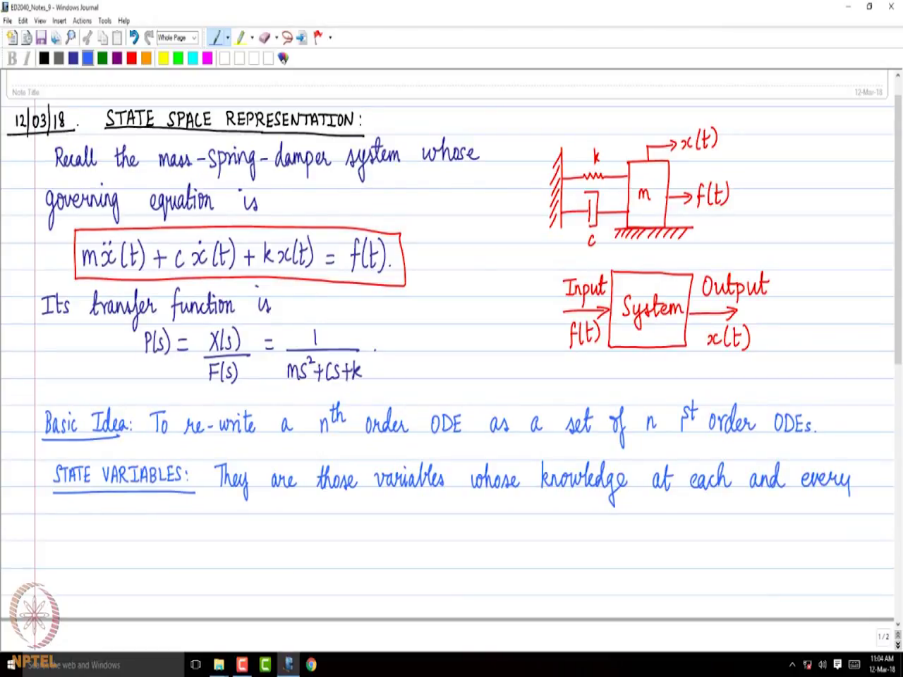 ED2040_Notes_9 - Windows Journal
File Edit View Insert Actions Tools Help
Whole Page
B I
Note Title
12-Mar-18
12/03/18. STATE SPACE REPRESENTATION:
Recall the mass-spring-damper system whose
governing equation is
mẍ(t) + cẋ(t) + kx(t) = f(t).
Its transfer function is
P(s) = X(s)/F(s) = 1/(ms²+cs+k).
k
x(t)
m
f(t)
c
Input
f(t)
System
Output
x(t)
Basic Idea: To re-write a nth order ODE as a set of n 1st order ODEs.
STATE VARIABLES: They are those variables whose knowledge at each and every
1/2
NPTEL
the web and Windows
11:04 AM
12-Mar-18